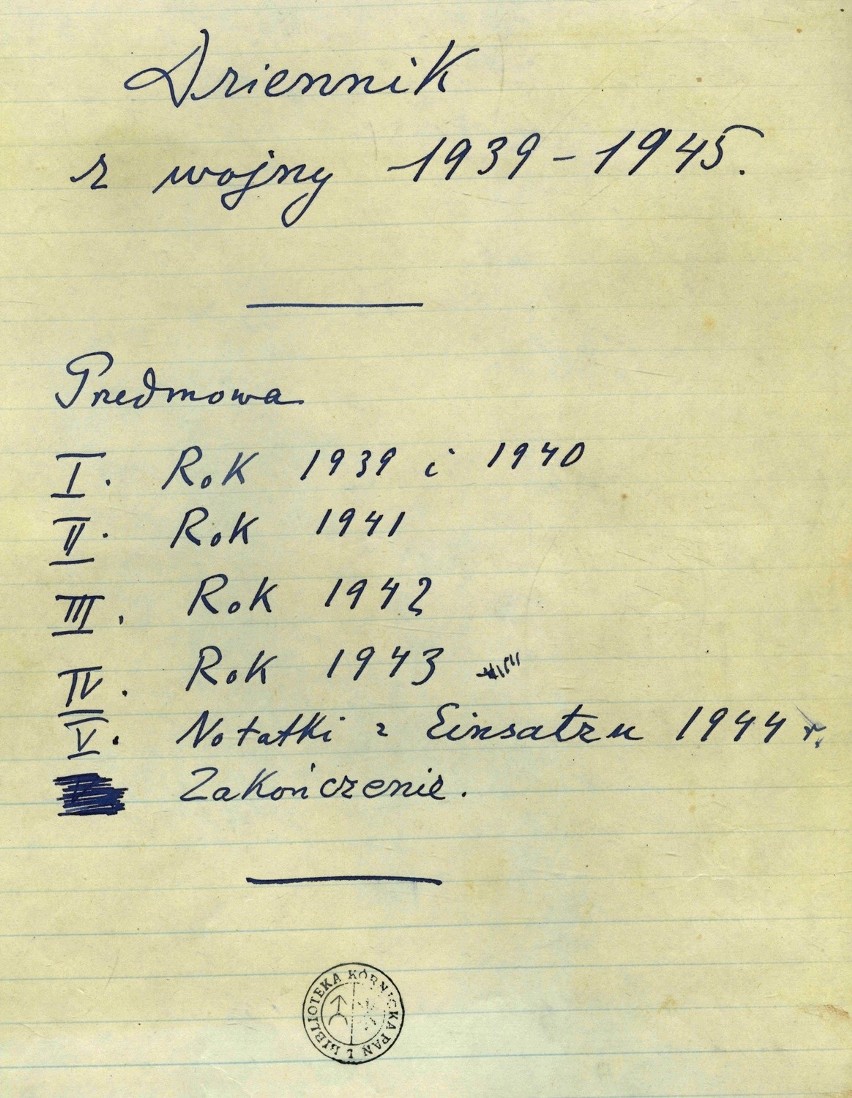 Dziennik
z wojny 1939-1945.
Przedmowa
I. Rok 1939 i 1940
II. Rok 1941
III. Rok 1942
IV. Rok 1943
V. Notatki z Einsatzu 1944 r.
Zakończenie.
BIBLIOTEKA KÓRNICKA PAN